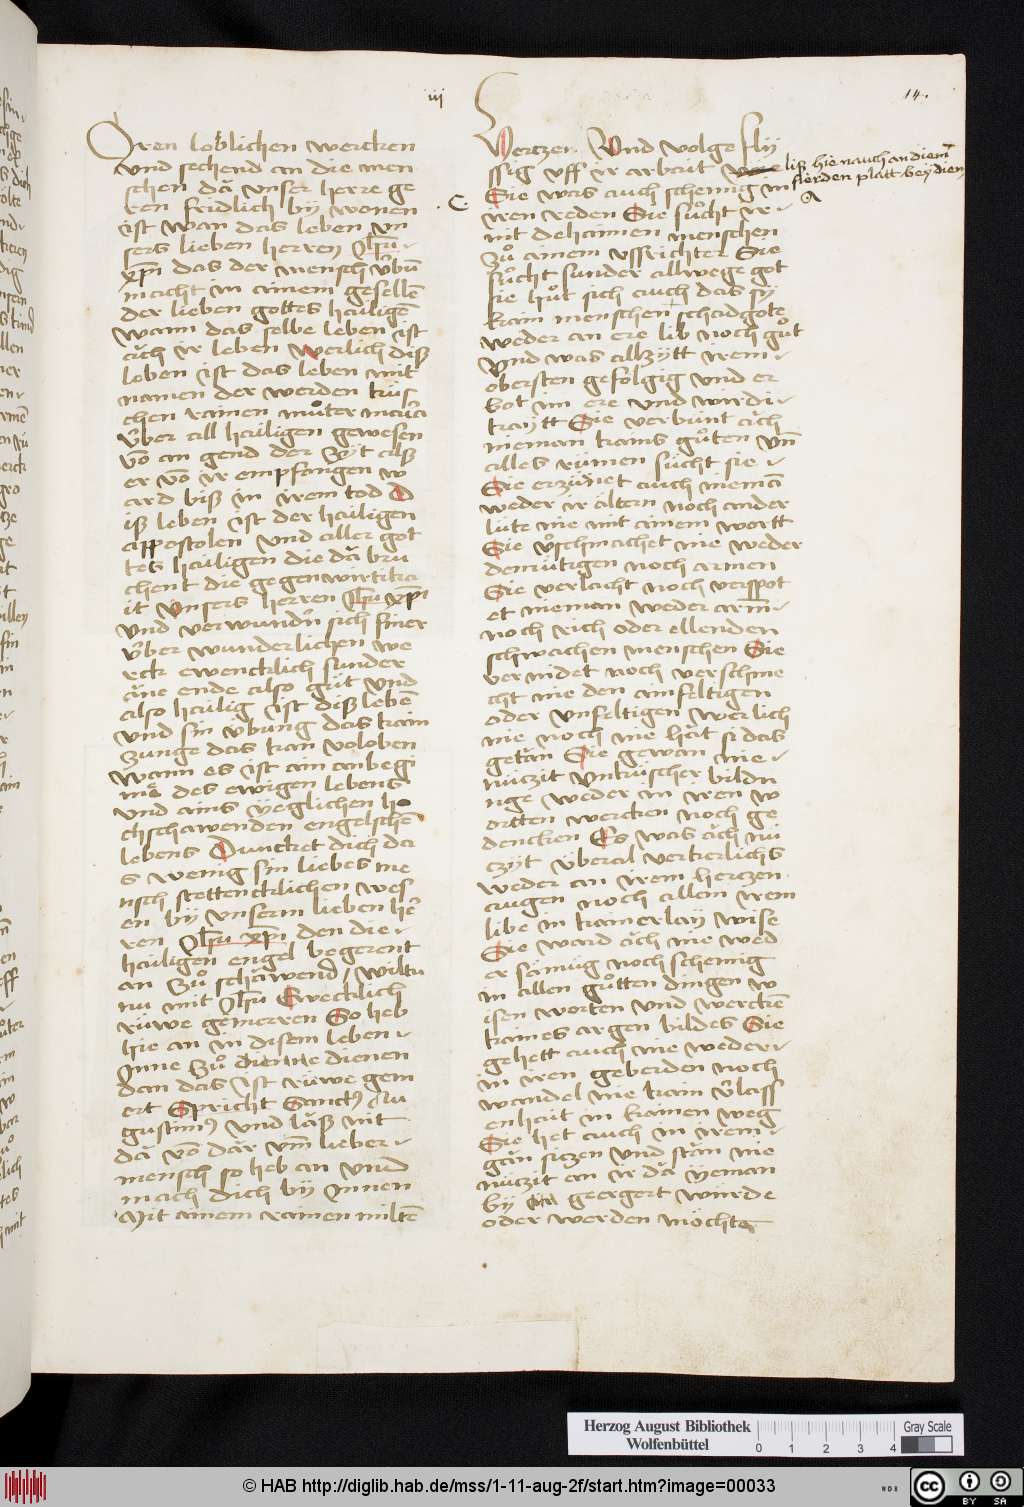 iij
14.
Oren loblichen wercken
vnd sechend an die men
schen dā vnser herre ge
ren fridlich by wonen
ist wan das leben vn
sers lieben herren Jhesu
xpi das der mensch v̄bū
macht in ainem gesellē
der lieben gottes hailigē
Wann das selbe leben ist
ăch ir leben Werlich diß
loben ist das leben mit
namen der werden kús
chen rainen můter maria
v̄ber all hailigen gewesen
vō an gend der Zyt alß
er vō ir empfangen w
ard biß in irem tod D
iß leben ist der hailigen
appostolen vnd aller got
tes hailigen die dā bru
chent die gegenwirtika
it Vnsers herren Jhesu xpi
vnd verwundn̄ sich siner
v̄ber wunderlichen we
rck ewencklich sunder
āne ende also gůt vnd
also hailig ist diß lebē
vnd sin v̄bung das kain
zunge das kan voloben
Wann es ist ain anbegi
nē des ewigen lebens
vnd ains yeglichen ho
chschawenden engelschē
lebens Duncket dich da
s wenig sin liebes me
nsch stettencklichen wes
en by vnserm lieben hē
ren Jhesu xpi den die
hailigen engel begerent
an zů schăwend / wiltu
nu mit Jhesu Ewecklich
růwe geniessen So heb
hie an in disem leben
Inne zů dienen
dan das ist růwe gem
ert Spricht Sanctus Au
gustinus vnd lăß nit
dā vō dăr vm̄ lieber
mensch so heb an vnd
mach dich by Innen
Mit ainem rainen miltē
Hertzen Vnd volge fly
ssig vff ir arbait
liß hie nauch an diem
fierden platt bey diem
A
C
Sie was auch schemig in
iren reden Sie sůcht ir
nit dehainen menschen
zů ainem vssrichter Sie
sůcht sunder allwege got
sie hůt sich auch das sy
kain menschen schadgote
weder an ere lib noch gůt
vnd was allzytt irem
obersten gefolgig vnd er
bot im ere vnd wirdi
kaytt Sie verbunt ăch
nieman kains gůten vn̄
alles růmen sůcht sie
Sie erzúrnet auch niemā
weder ir altern noch ander
lúte nie mit ainem wortt
Sie v̄schmachet nie weder
demútigen noch armen
Sie verlacht noch verspot
et nieman weder arm
noch rich oder ellenden
schwachen menschen Sie
vermidet noch verschme
cht nie den ainfeltigen
oder vnfeltigen werlich
nie noch nie hăt si das
getăn Sie gewan nie
núczit vnkúscher bildn
nge weder in iren w
ortten wercken noch ge
dencken Es was ăch nú
czyt v̄beral verkerlichs
weder an irem hertzen
augen noch allem irem
libe in kainerlay wise
Sie ward ăch nie wed
er sămúg noch schemig
in allen gůtten dingen w
isen worten vnd werckē
kaines argen bildes Sie
gehett auch nie weder
in iren geberden noch
wandel nie kain v̄lass
enhait in kainen weg
Sie het auch in irem
găn sitzen vnd stăn nie
núczit an ir dă yeman
by geergert wúrde
oder werden möchte
Herzog August Bibliothek
Wolfenbüttel
0 1 2 3 4
Gray Scale
© HAB http://diglib.hab.de/mss/1-11-aug-2f/start.htm?image=00033
WDB
cc BY SA